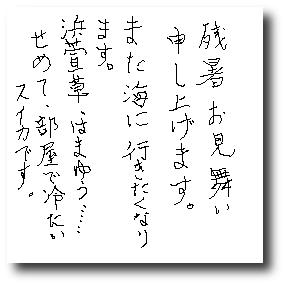 残暑お見舞い
申し上げます。
また海に行きたくなり
ます。
浜萱草、はまゆう……
せめて、部屋で冷たい
スイカです。